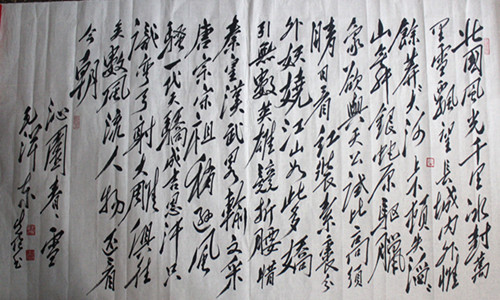 北國風光千里冰封萬
里雪飄望長城内外惟
餘莽〻大河上下頓失滔〻
山舞銀蛇原驅臘
象欲與天公試比高須
晴日看紅裝素裹分
外妖嬈江山如此多嬌
引無數英雄競折腰惜
秦皇漢武畧輸文采
唐宗宋祖稍遜風
騷一代天驕成吉思汗只
識彎弓射大雕俱往
矣數風流人物還看
今朝
沁園春、雪
毛澤東